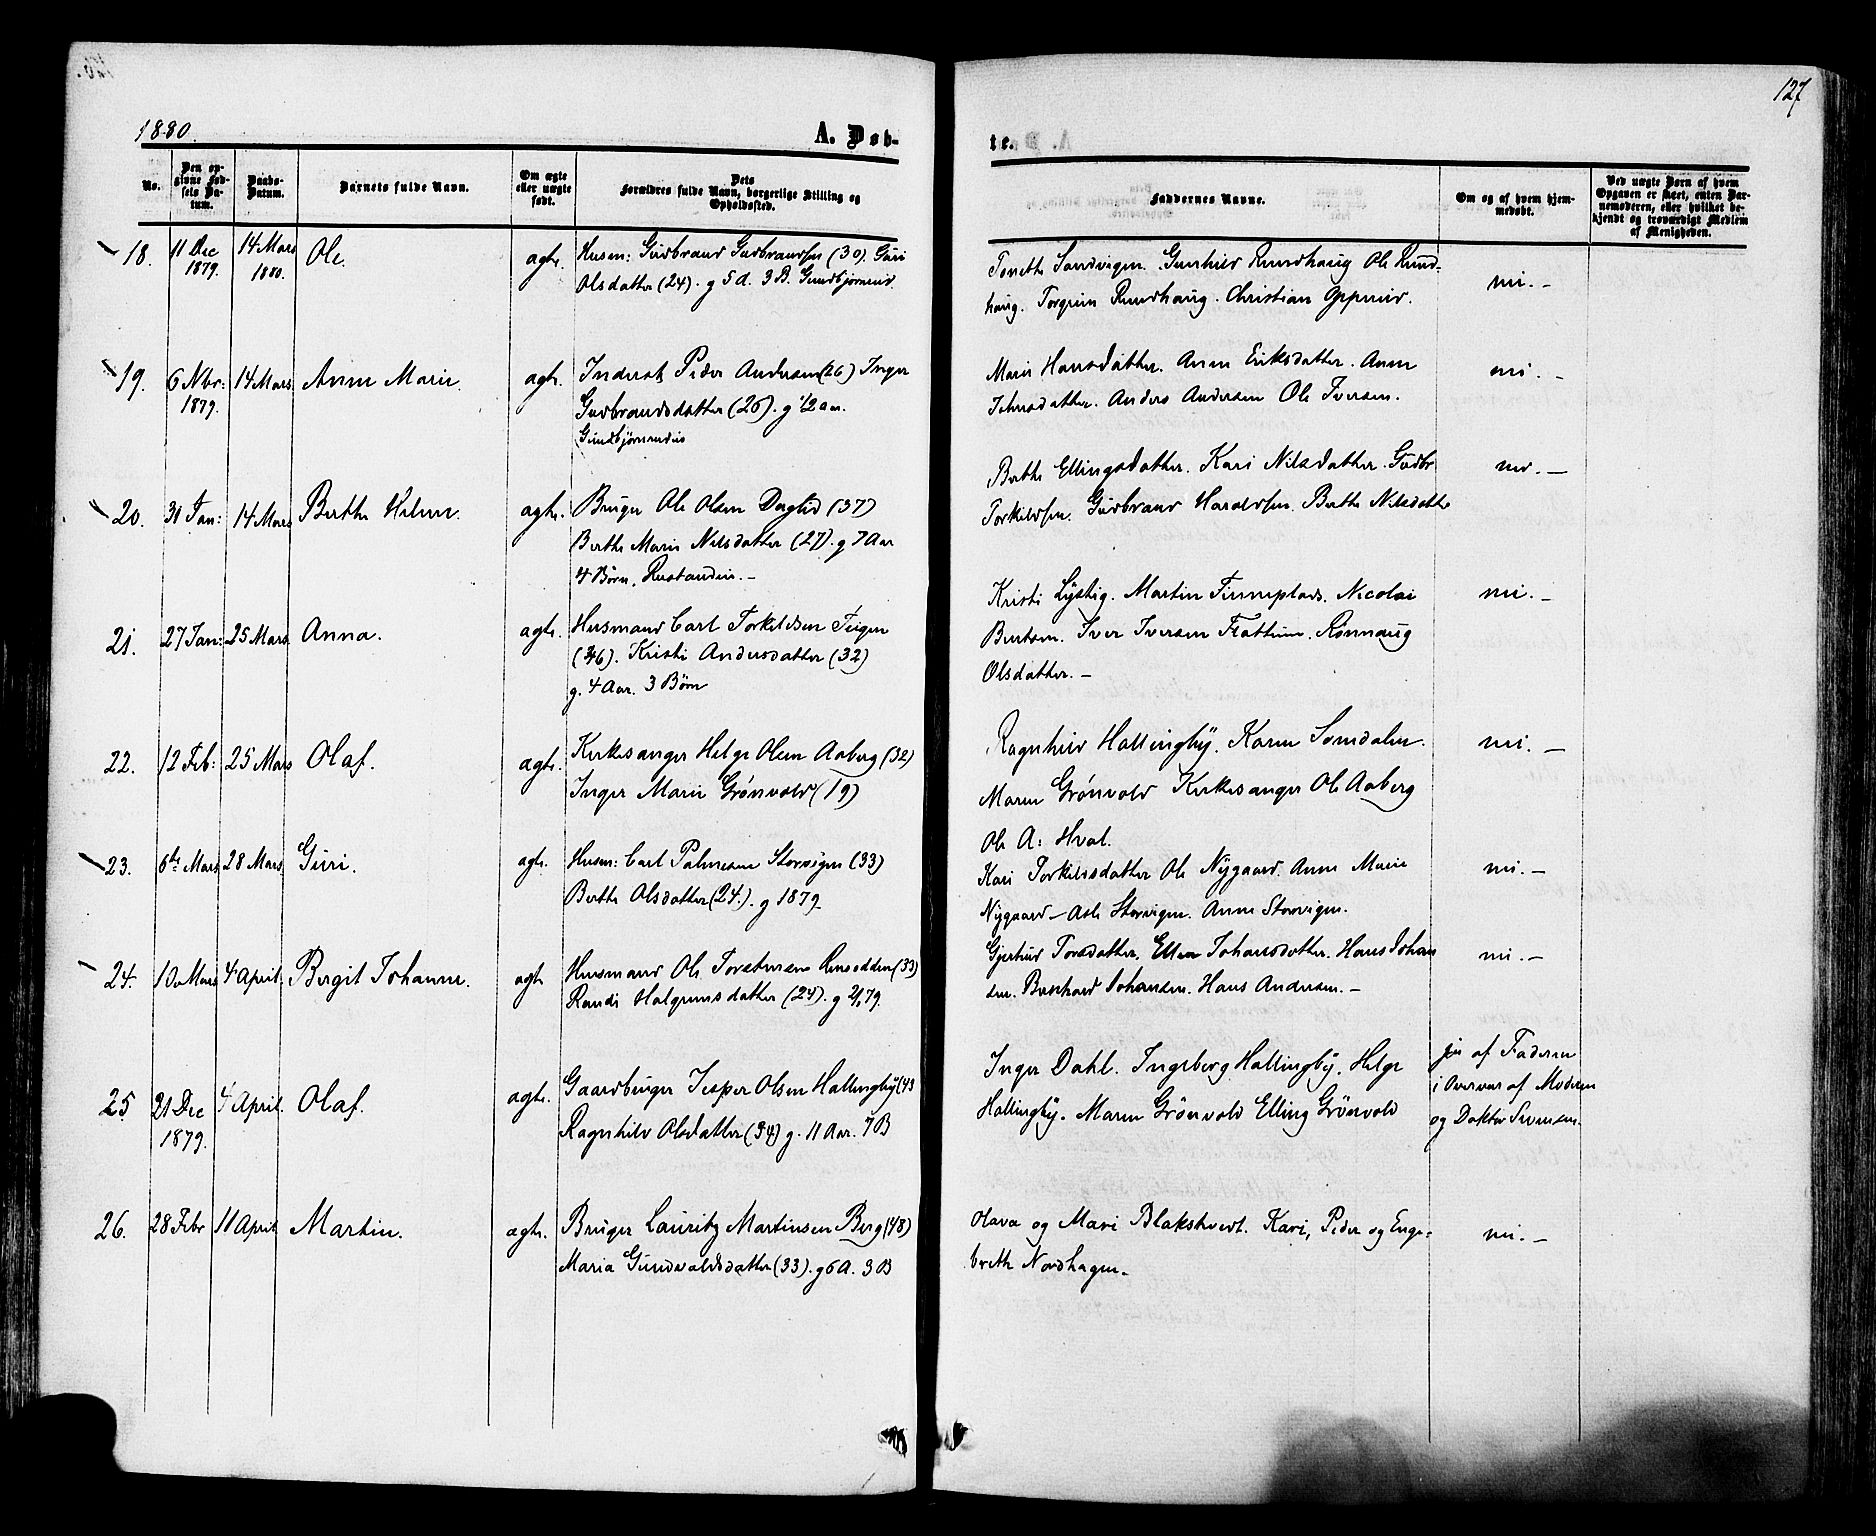 127
1880.
A. Døb-
te.
No.
Den op-
givne Fød-
sels Da-
tum.
Daabs-
Datum.
Barnets fulde Navn.
Om ægte
eller uægte
født.
Dets
Forældres fulde Navn, borgerlige Stilling og
Opholdssted.
Faddernes Navne.
Om og af hvem hjem-
medøbt.
Ved uægte Børn af hvem
Opgaven er skeet, enten Bar-
nemoderen, eller hvilket be-
kjendt og troværdigt Medlem
af Menigheden.
18. 11 Dec 1879. 14 Mars 1880. Ole. ægte. Husm: Gudbrand Gudbrandsen (30). Guri
Olsdatter (24). g 5 d. 3 B.
Tonette Sandvigen. Gunhild Rundhaug Ole Rund-
haug. Torgrim Rundhaug. Christian Oppmid.
nei. –
19. 6 Nbr: 1879. 14 Mars. Anne Marie. ægte. Inderst Peder Andersen (26) Inger
Gudbrandsdatter (26). g ½ aar.
Maria Hansdatter. Anne Eriksdatter. Anne
Jensdatter. Anders Andersen Ole Iversen.
nei. –
20. 31 Jan: 14 Mars Berthe Helene. ægte. Bruger Ole Olsen Daglid (37)
Berthe Marie Nilsdatter (27). g 7 Aar
4 Børn. Rustandeie. –
Berthe Ellingsdatter. Kari Nilsdatter. Gudbr
Torkildsen. Gudbrand Haraldsen. Berthe Nilsdatter
nei. –
21. 27 Jan: 25 Mars. Anna. ægte. Husmand Carl Torkildsen Teigen
(36). Kristi Andersdatter (32)
g. 4 Aar. 3 Børn
Kristi Lystig. Martin Finneplads. Nicolai
Berntsen. Iver Iversen Flattum. Rønnaug
Olsdatter. –
nei. –
22. 12 Feb: 25 Mars Olaf. ægte. Kirkesanger Helge Olsen Aaberg (32)
Inger Marie Grønvold (19)
Ragnhild Hallingby. Karen Somdalen.
Maren Grønvold Kirkesanger Ole Aaberg
Ole A: Hval.
nei. –
23. 6te Mars 28 Mars. Guri. ægte. Husm: Carl Palmesen Storvigen (33)
Berthe Olsdatter (24.). g 1879.
Kari Torkildsdatter Ole Nygaard. Anne Marie
Nygaard – Asle Storvigen. Anne Storvigen.
nei. –
24. 10 Mars 4 April. Bergit Johanne. ægte Husmand Ole Torstensen Ramsodden (33)
Randi Halgrimsdatter (24). g 79.
Gjertrud Torsdatter. Ellen Johansdatter. Hans Johan
sen. Bernhard Johansen. Hans Andersen. –
nei. –
25 21 Dec 1879. 4 April. Olaf. ægte. Gaardbruger Jesper Olsen Hallingby (43
Ragnhild Olsdatter (34) g. 11 Aar. 7 B
Inger Dahl. Ingeborg Hallingby. Helge
Hallingby. Maren Grønvold Elling Grønvold
ja af Faderen
i Overvær af Moderen
og Doktor Svensen.
26. 28 Febr 11 April Martin. ægte. Bruger Lauritz Martinsen Berg (48)
Maria Gundvaldsdatter (33). g 6 A. 3 B
Olava og Mari Blakstvedt. Kari, Peder og Enge-
breth Nordhagen.
nei. –